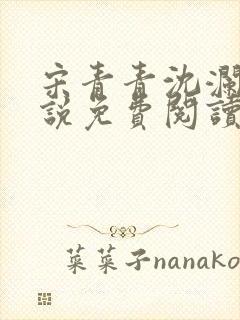 宋青青沈瀾
說免費閱讀
菜菜子nanako